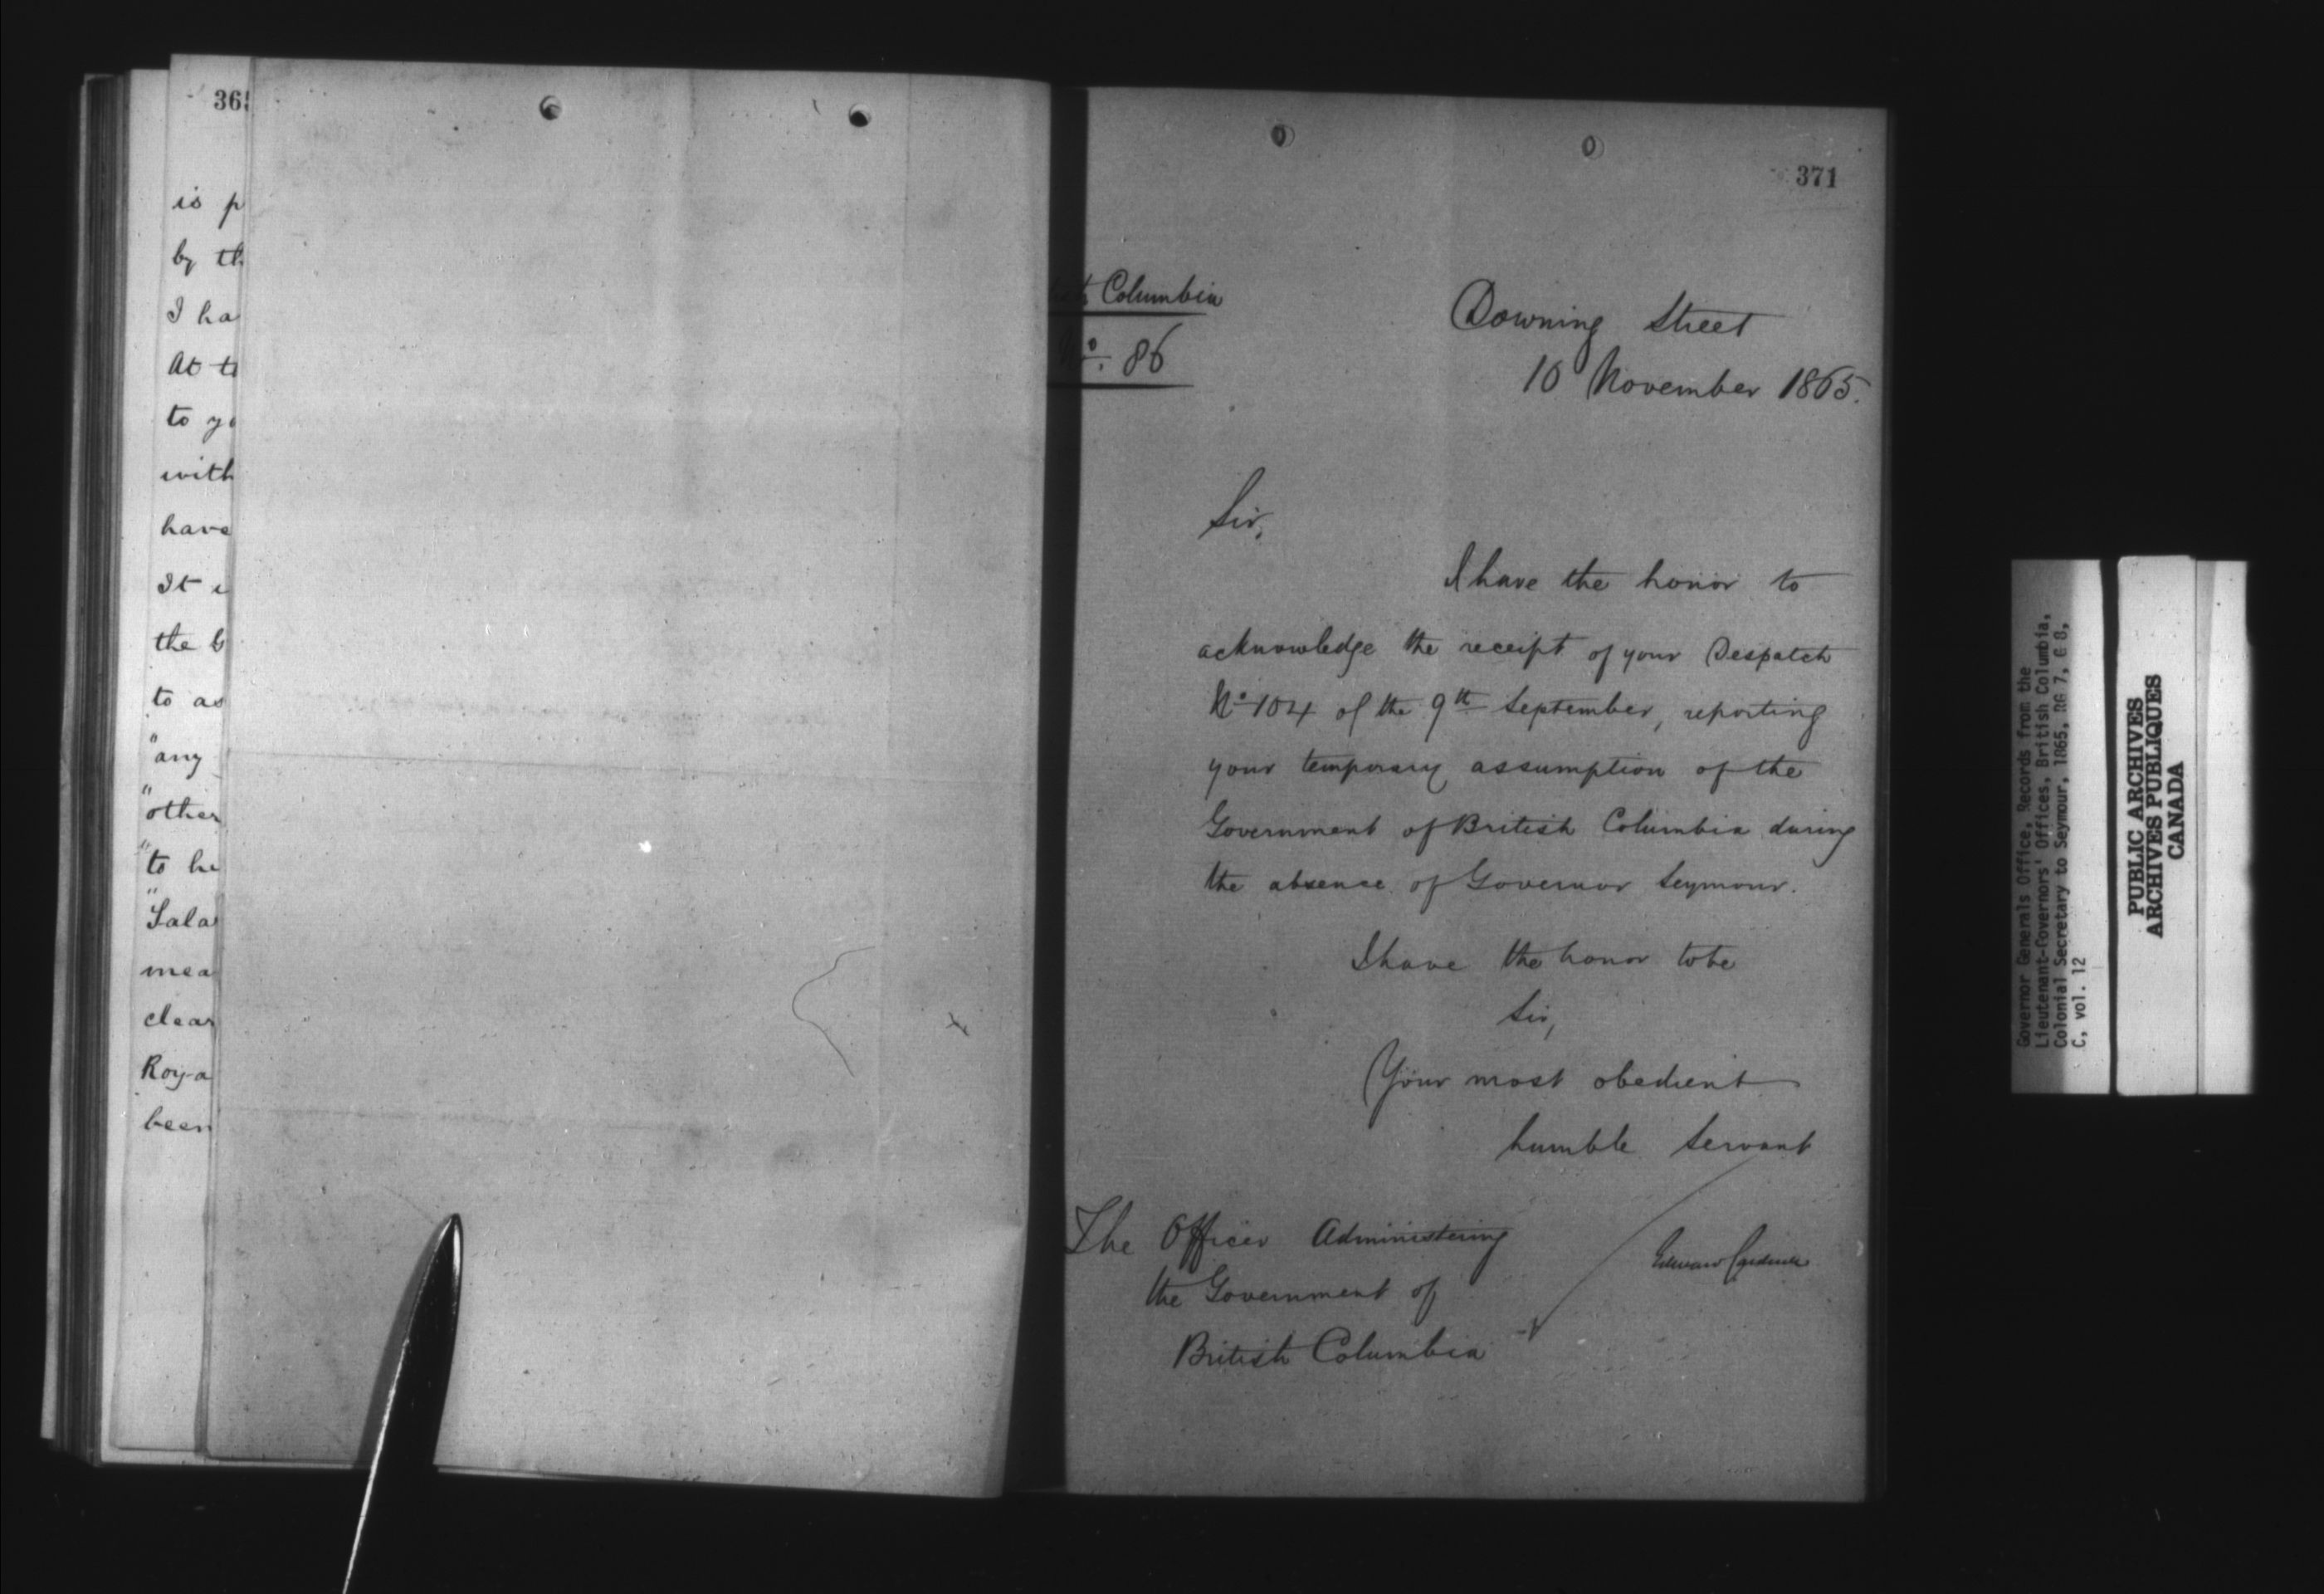 36
is p
by th
I ha
At to
to yo
with
have
It i
the G
to as
"any
"other
"to he
"Sala
mea
clear
Roya
been
371
Columbia
No. 86
Downing Street
10 November 1865.
Sir,
I have the honor to
acknowledge the receipt of your Despatch
No 104 of the 9th September, reporting
your temporary assumption of the
Government of British Columbia during
the absence of Governor Seymour.
I have the honor to be
Sir,
Your most obedient
humble Servant
Edward Cardwell
The Officer Administering
the Government of
British Columbia
Governor Generals Office, Records from the
Lieutenant-Governors' Offices, British Columbia,
Colonial Secretary to Seymour, 1865, RG 7, G 8,
C, vol. 12
PUBLIC ARCHIVES
ARCHIVES PUBLIQUES
CANADA